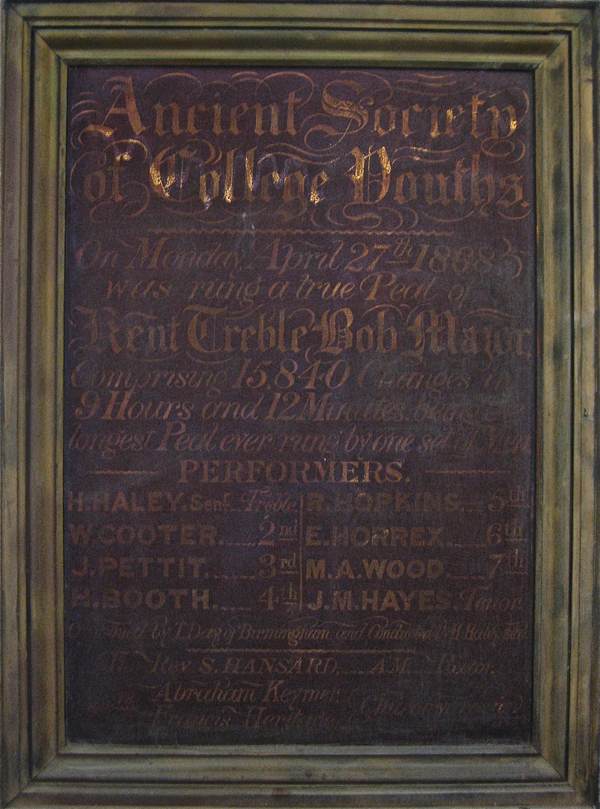 Ancient Society
of College Youths.
On Monday, April 27th 1868
was rung a true Peal of
Kent Treble Bob Major,
Comprising 15,840 Changes in
9 Hours and 12 Minutes, being the
longest Peal ever rung by one set of Men.
PERFORMERS.
H. HALEY. Senr. Treble. R. HOPKINS. 5th
W. COOTER. 2nd E. HORREX. 6th
J. PETTIT. 3rd M. A. WOOD. 7th
H. BOOTH. 4th J. M. HAYES. Tenor.
by T. Day of Birmingham and Conducted by H. Haley, Senr.
Rev S. HANSARD, A.M. Rector.
Abraham Keymer
Francis